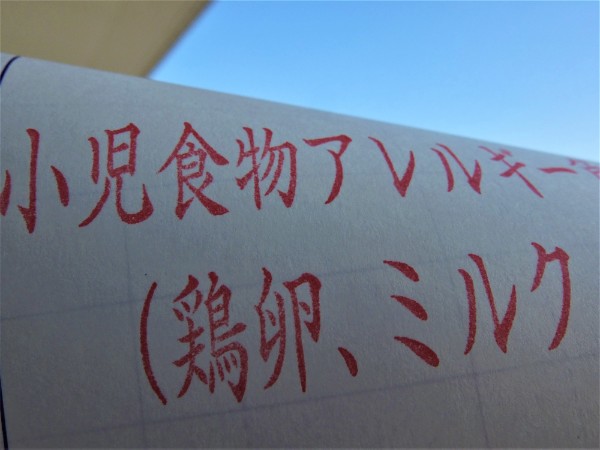 小児食物アレルギー
(鶏卵、ミルク